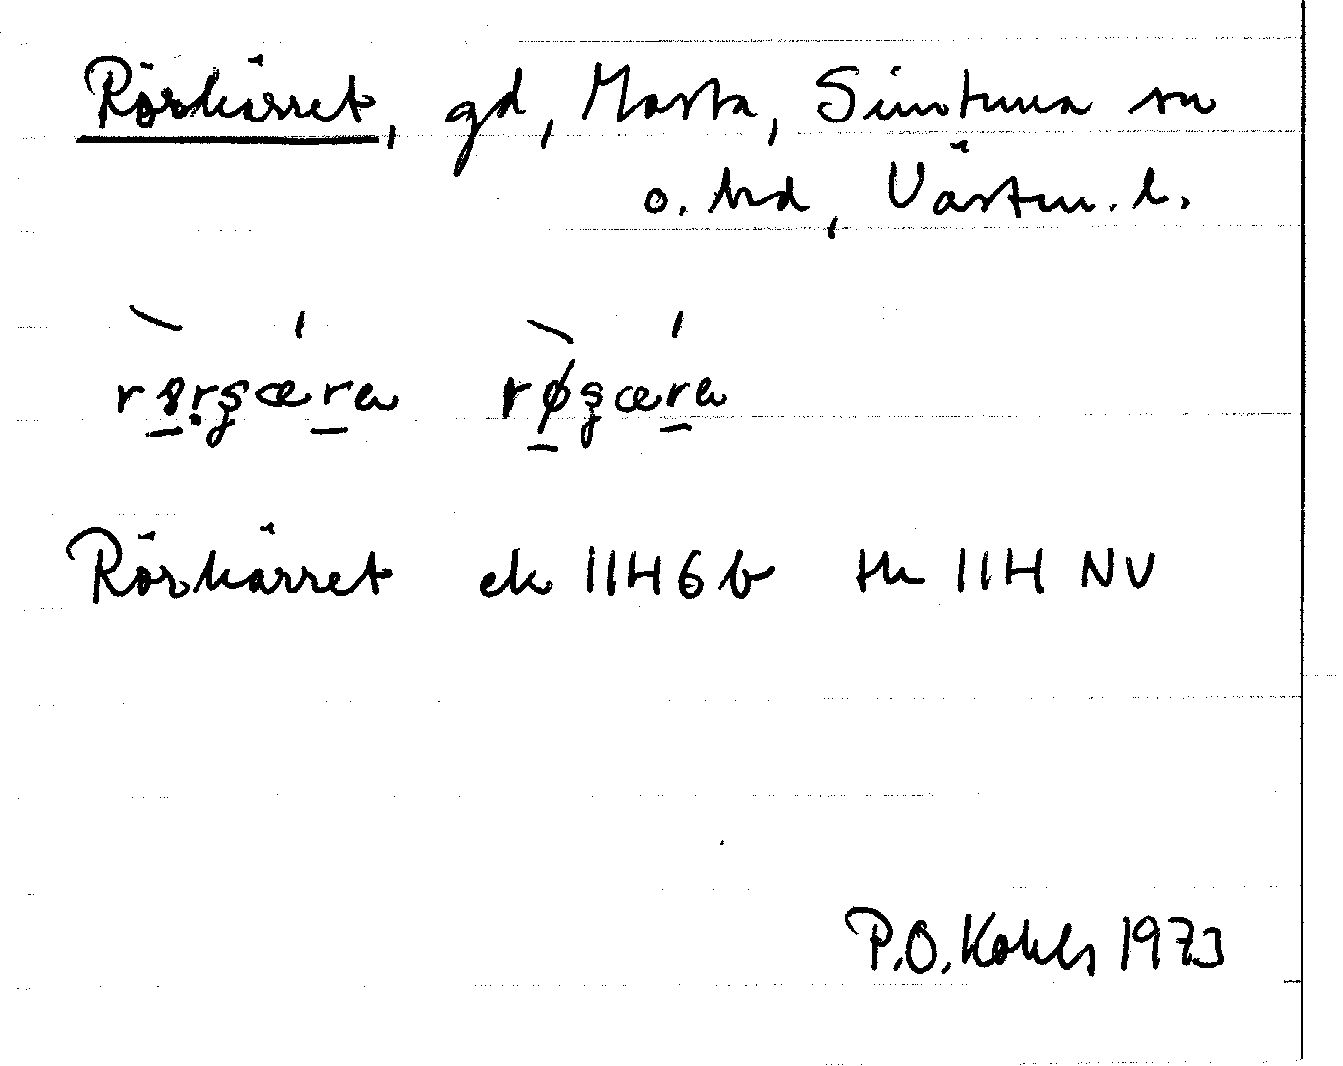 Rörkärret, gd, Marsta, Simtuna sn
o. hd, Västm. l.
Rörkärret ek 11H6b tk 11H NV
P.O. Kohls 1973